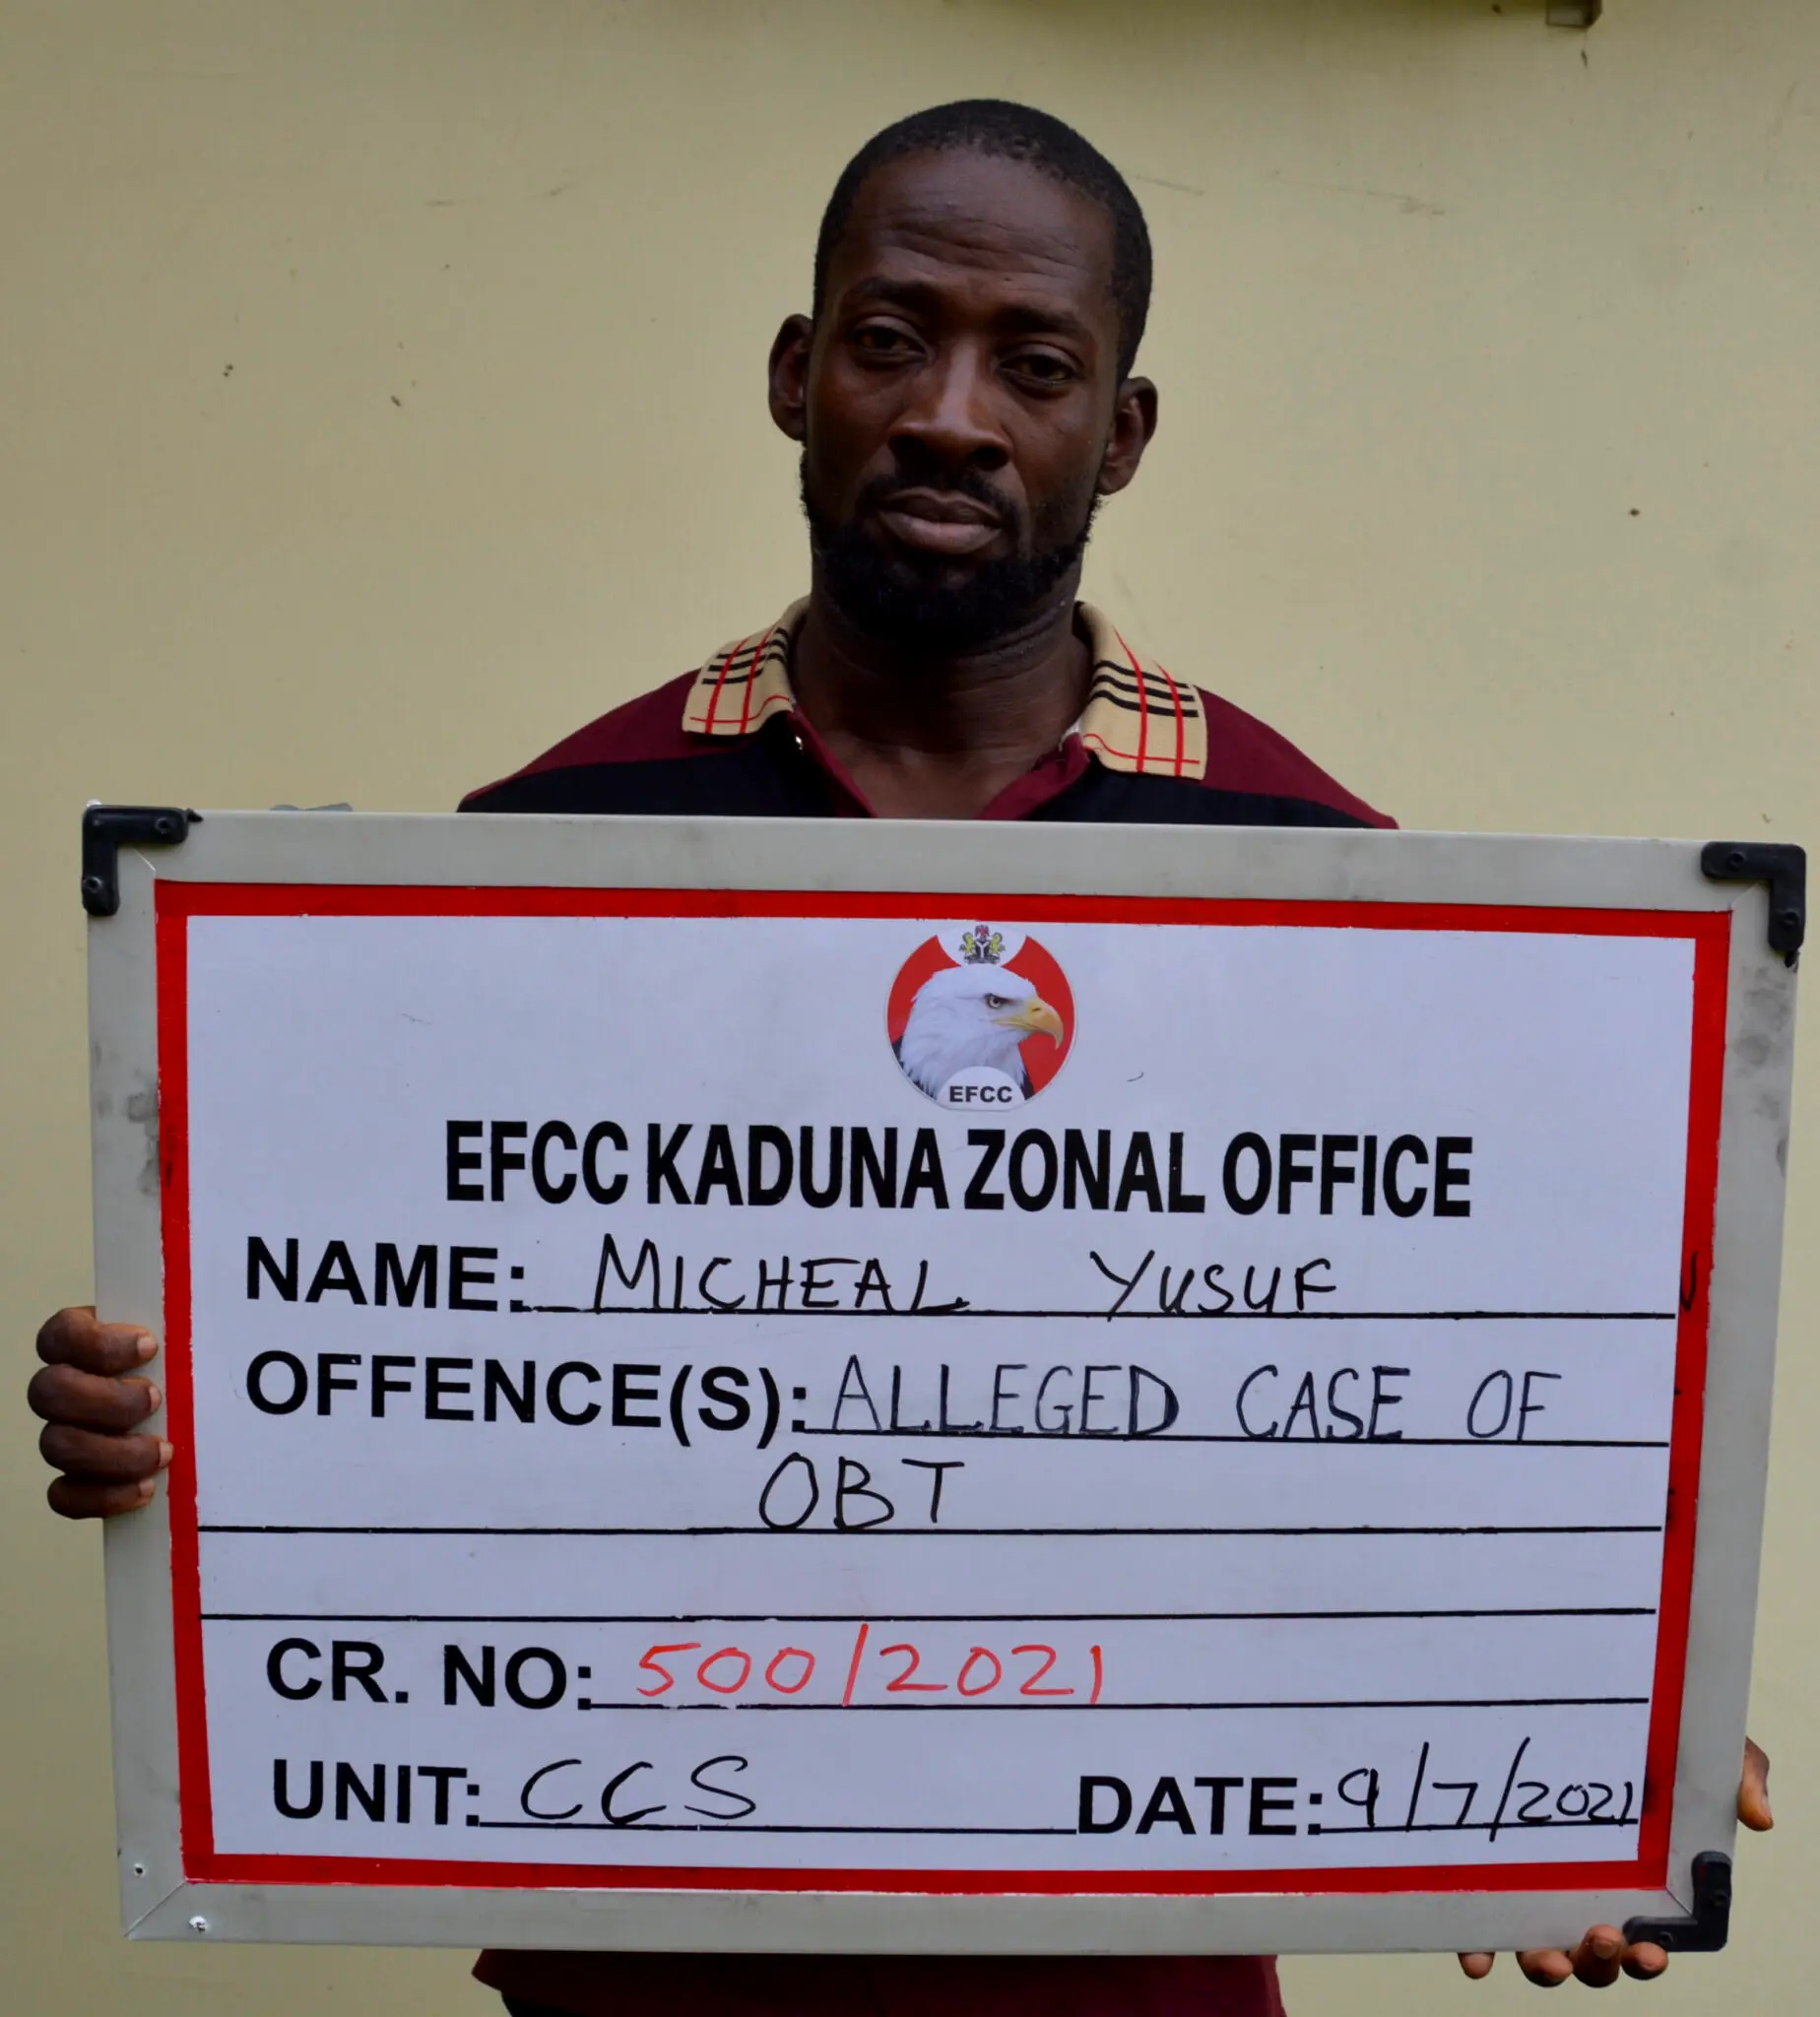 EFCC
EFCC KADUNA ZONAL OFFICE
NAME: MICHEAL YUSUF
OFFENCE(S): ALLEGED CASE OF
OBT
CR. NO: 500/2021
UNIT: CCS DATE: 9/7/2021